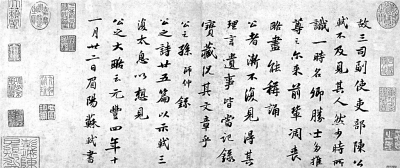 故三司副使吏部陳公
軾不及見其人然少時所
識一時名卿勝士多推
尊之尔來前輩凋喪
略盡能稱誦
公者漸不復見得其
理言遺事皆當記錄
寶藏況其文章乎
公之孫師仲錄
公之詩廿五篇以示軾三
復太息以想見
公之大略云元豐四年十
一月廿二日眉陽蘇軾書